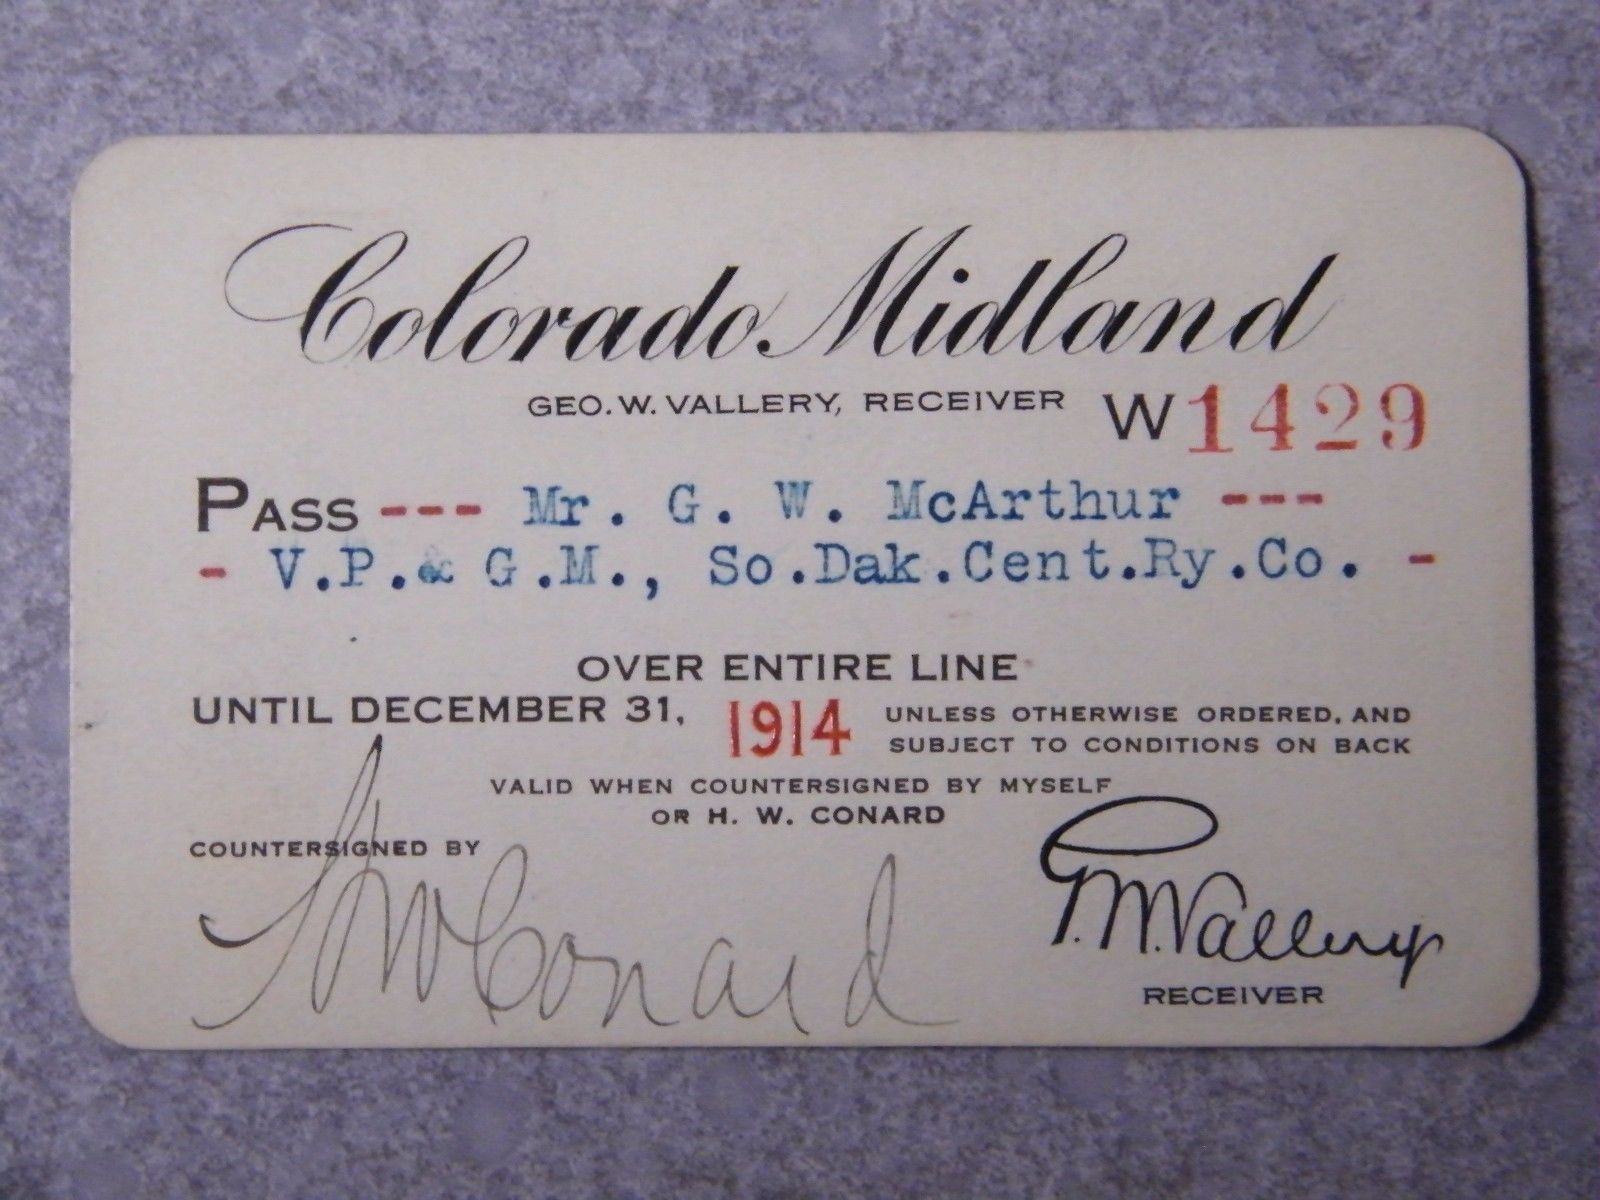 Colorado Midland
GEO. W. VALLERY, RECEIVER W 1429
PASS --- Mr. G. W. McArthur ---
- V.P.& G.M., So.Dak.Cent.Ry.Co. -
OVER ENTIRE LINE
UNTIL DECEMBER 31, 1914 UNLESS OTHERWISE ORDERED, AND
SUBJECT TO CONDITIONS ON BACK
VALID WHEN COUNTERSIGNED BY MYSELF
OR H. W. CONARD
COUNTERSIGNED BY
H W Conard
G. W. Vallery
RECEIVER